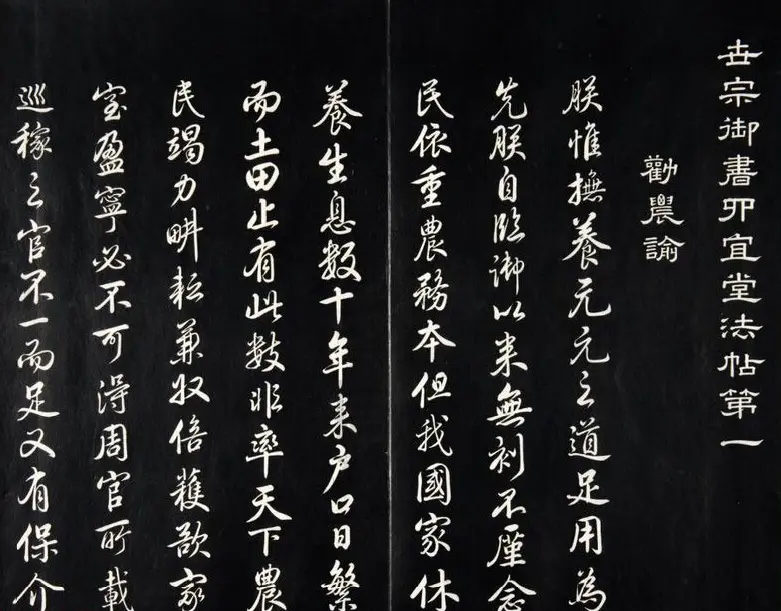 世宗御書四宜堂法帖第一
勸農諭
朕惟撫養元元之道足用為
先朕自臨御以來無刻不廑念
民依重農務本但我國家休
養生息數十年來户口日繁
而土田止有此數非率天下農
民竭力畊耘兼收倍穫欲家
室盈寧必不可得周官所載
巡稼之官不一而足又有保介